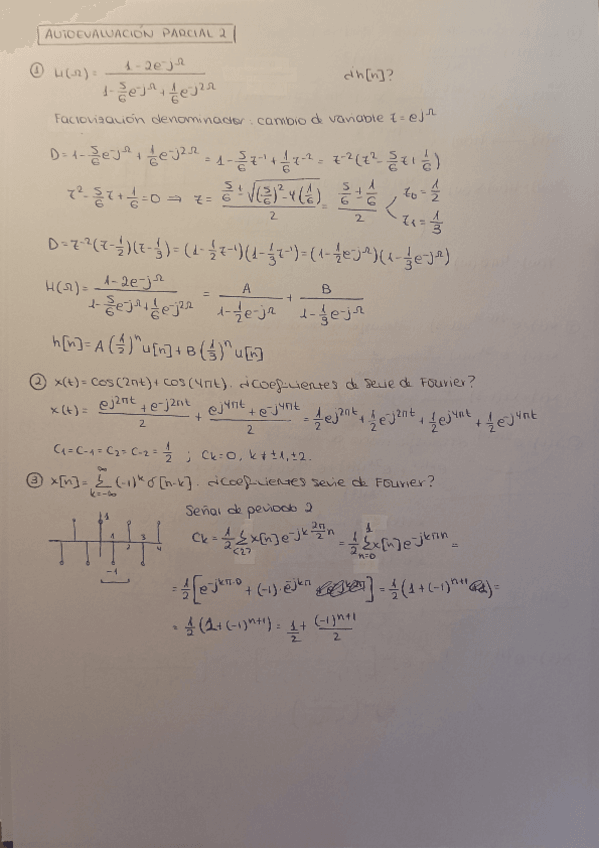 AUTOEVALUACIÓN PARCIAL 2
① H(Ω) = (1 - 2e^-jΩ) / (1 - 5/6 e^-jΩ + 1/6 e^-j2Ω)   ¿h[n]?
Factorización denominador: cambio de variable z = e^jΩ
D = 1 - 5/6 e^-jΩ + 1/6 e^-j2Ω = 1 - 5/6 z^-1 + 1/6 z^-2 = z^-2 (z^2 - 5/6 z + 1/6)
z^2 - 5/6 z + 1/6 = 0 ⇒ z = (5/6 ± √((5/6)^2 - 4(1/6))) / 2 = (5/6 ± 1/6) / 2   z0 = 1/2   z1 = 1/3
D = z^-2 (z - 1/2)(z - 1/3) = (1 - 1/2 z^-1)(1 - 1/3 z^-1) = (1 - 1/2 e^-jΩ)(1 - 1/3 e^-jΩ)
H(Ω) = (1 - 2e^-jΩ) / (1 - 5/6 e^-jΩ + 1/6 e^-j2Ω) = A / (1 - 1/2 e^-jΩ) + B / (1 - 1/3 e^-jΩ)
h[n] = A (1/2)^n u[n] + B (1/3)^n u[n]
② x(t) = cos(2πt) + cos(4πt). ¿Coeficientes de serie de Fourier?
x(t) = (e^j2πt + e^-j2πt) / 2 + (e^j4πt + e^-j4πt) / 2 = 1/2 e^j2πt + 1/2 e^-j2πt + 1/2 e^j4πt + 1/2 e^-j4πt
C1 = C-1 = C2 = C-2 = 1/2 ; Ck = 0, k ≠ ±1, ±2.
③ x[n] = ∑ k=-∞ ∞ (-1)^k σ[n-k]. ¿Coeficientes serie de Fourier?
Señal de periodo 2
1
1 2 3 4
-1
Ck = 1/2 ∑ <2> x[n] e^-jk 2π/2 n = 1/2 ∑ n=0 1 x[n] e^-jkπn =
= 1/2 [e^-jkπ·0 + (-1)·e^-jkπ] = 1/2 (1 + (-1)^n+1) =
= 1/2 (1 + (-1)^n+1) = 1/2 + (-1)^n+1 / 2